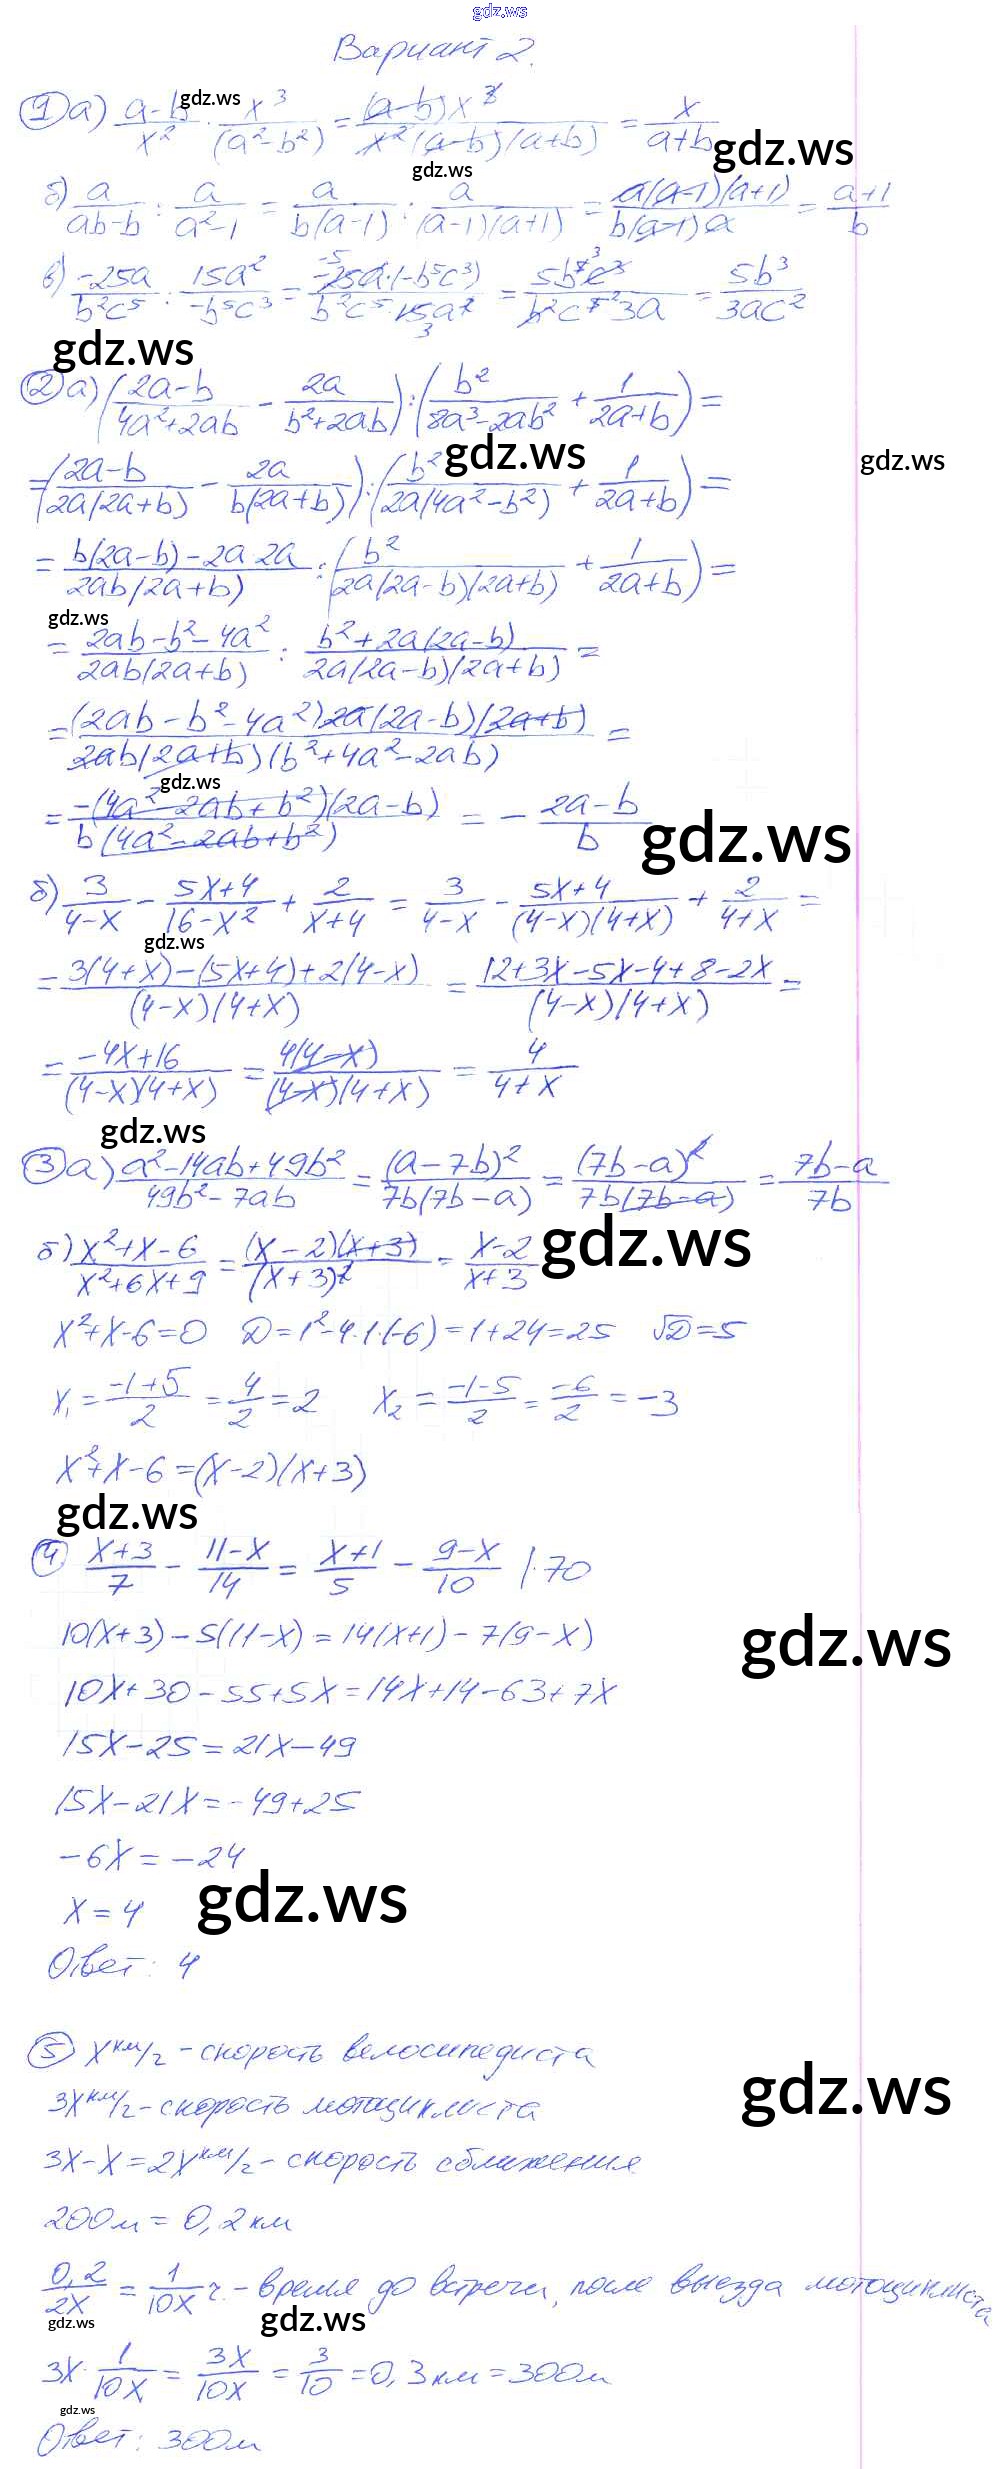 gdz.ws
Вариант 2.
① а) (a-b)/x² · x³/(a²-b²) = (a-b)x³/(x²(a-b)(a+b)) = x/(a+b)
gdz.ws
gdz.ws
gdz.ws
б) a/(ab-b) : a/(a²-1) = a/(b(a-1)) : a/((a-1)(a+1)) = a(a-1)(a+1)/(b(a-1)a) = (a+1)/b
в) -25a/(b²c⁵) : 15a²/(-b⁵c³) = -25a·(-b⁵c³)/(b²c⁵·15a²) = 5b⁵c³/(b²c⁵3a) = 5b³/(3ac²)
gdz.ws
② а) ((2a-b)/(4a²+2ab) - 2a/(b²+2ab)) : (b²/(8a³-2ab²) + 1/(2a+b)) =
gdz.ws
gdz.ws
= ((2a-b)/(2a(2a+b)) - 2a/(b(2a+b))) : (b²/(2a(4a²-b²)) + 1/(2a+b)) =
= (b(2a-b)-2a·2a)/(2ab(2a+b)) : (b²/(2a(2a-b)(2a+b)) + 1/(2a+b)) =
gdz.ws
= (2ab-b²-4a²)/(2ab(2a+b)) : (b²+2a(2a-b))/(2a(2a-b)(2a+b)) =
= (2ab-b²-4a²)2a(2a-b)(2a+b)/(2ab(2a+b)(b²+4a²-2ab)) =
gdz.ws
= -(4a²-2ab+b²)(2a-b)/(b(4a²-2ab+b²)) = - (2a-b)/b
gdz.ws
б) 3/(4-x) - (5x+4)/(16-x²) + 2/(x+4) = 3/(4-x) - (5x+4)/((4-x)(4+x)) + 2/(4+x) =
gdz.ws
= (3(4+x)-(5x+4)+2(4-x))/((4-x)(4+x)) = (12+3x-5x-4+8-2x)/((4-x)(4+x)) =
= (-4x+16)/((4-x)(4+x)) = 4(4-x)/((4-x)(4+x)) = 4/(4+x)
gdz.ws
③ а) (a²-14ab+49b²)/(49b²-7ab) = (a-7b)²/(7b(7b-a)) = (7b-a)²/(7b(7b-a)) = (7b-a)/7b
б) (x²+x-6)/(x²+6x+9) = (x-2)(x+3)/(x+3)² = (x-2)/(x+3)
gdz.ws
x²+x-6=0 D=1²-4·1·(-6)=1+24=25 √D=5
x₁ = (-1+5)/2 = 4/2 = 2 x₂ = (-1-5)/2 = -6/2 = -3
x²+x-6=(x-2)(x+3)
gdz.ws
④ (x+3)/7 - (11-x)/14 = (x+1)/5 - (9-x)/10 |·70
10(x+3)-5(11-x)=14(x+1)-7(9-x)
gdz.ws
10x+30-55+5x=14x+14-63+7x
15x-25=21x-49
15x-21x=-49+25
-6x=-24
x=4
gdz.ws
Ответ: 4
⑤ x км/г - скорость велосипедиста
gdz.ws
3x км/г - скорость мотоциклиста
3x-x=2x км/г - скорость сближения
200м = 0,2 км
0,2/2x = 1/10x г. - время до встречи, после выезда мотоциклиста
gdz.ws
gdz.ws
3x · 1/10x = 3x/10x = 3/10 = 0,3 км = 300м
gdz.ws
Ответ: 300м